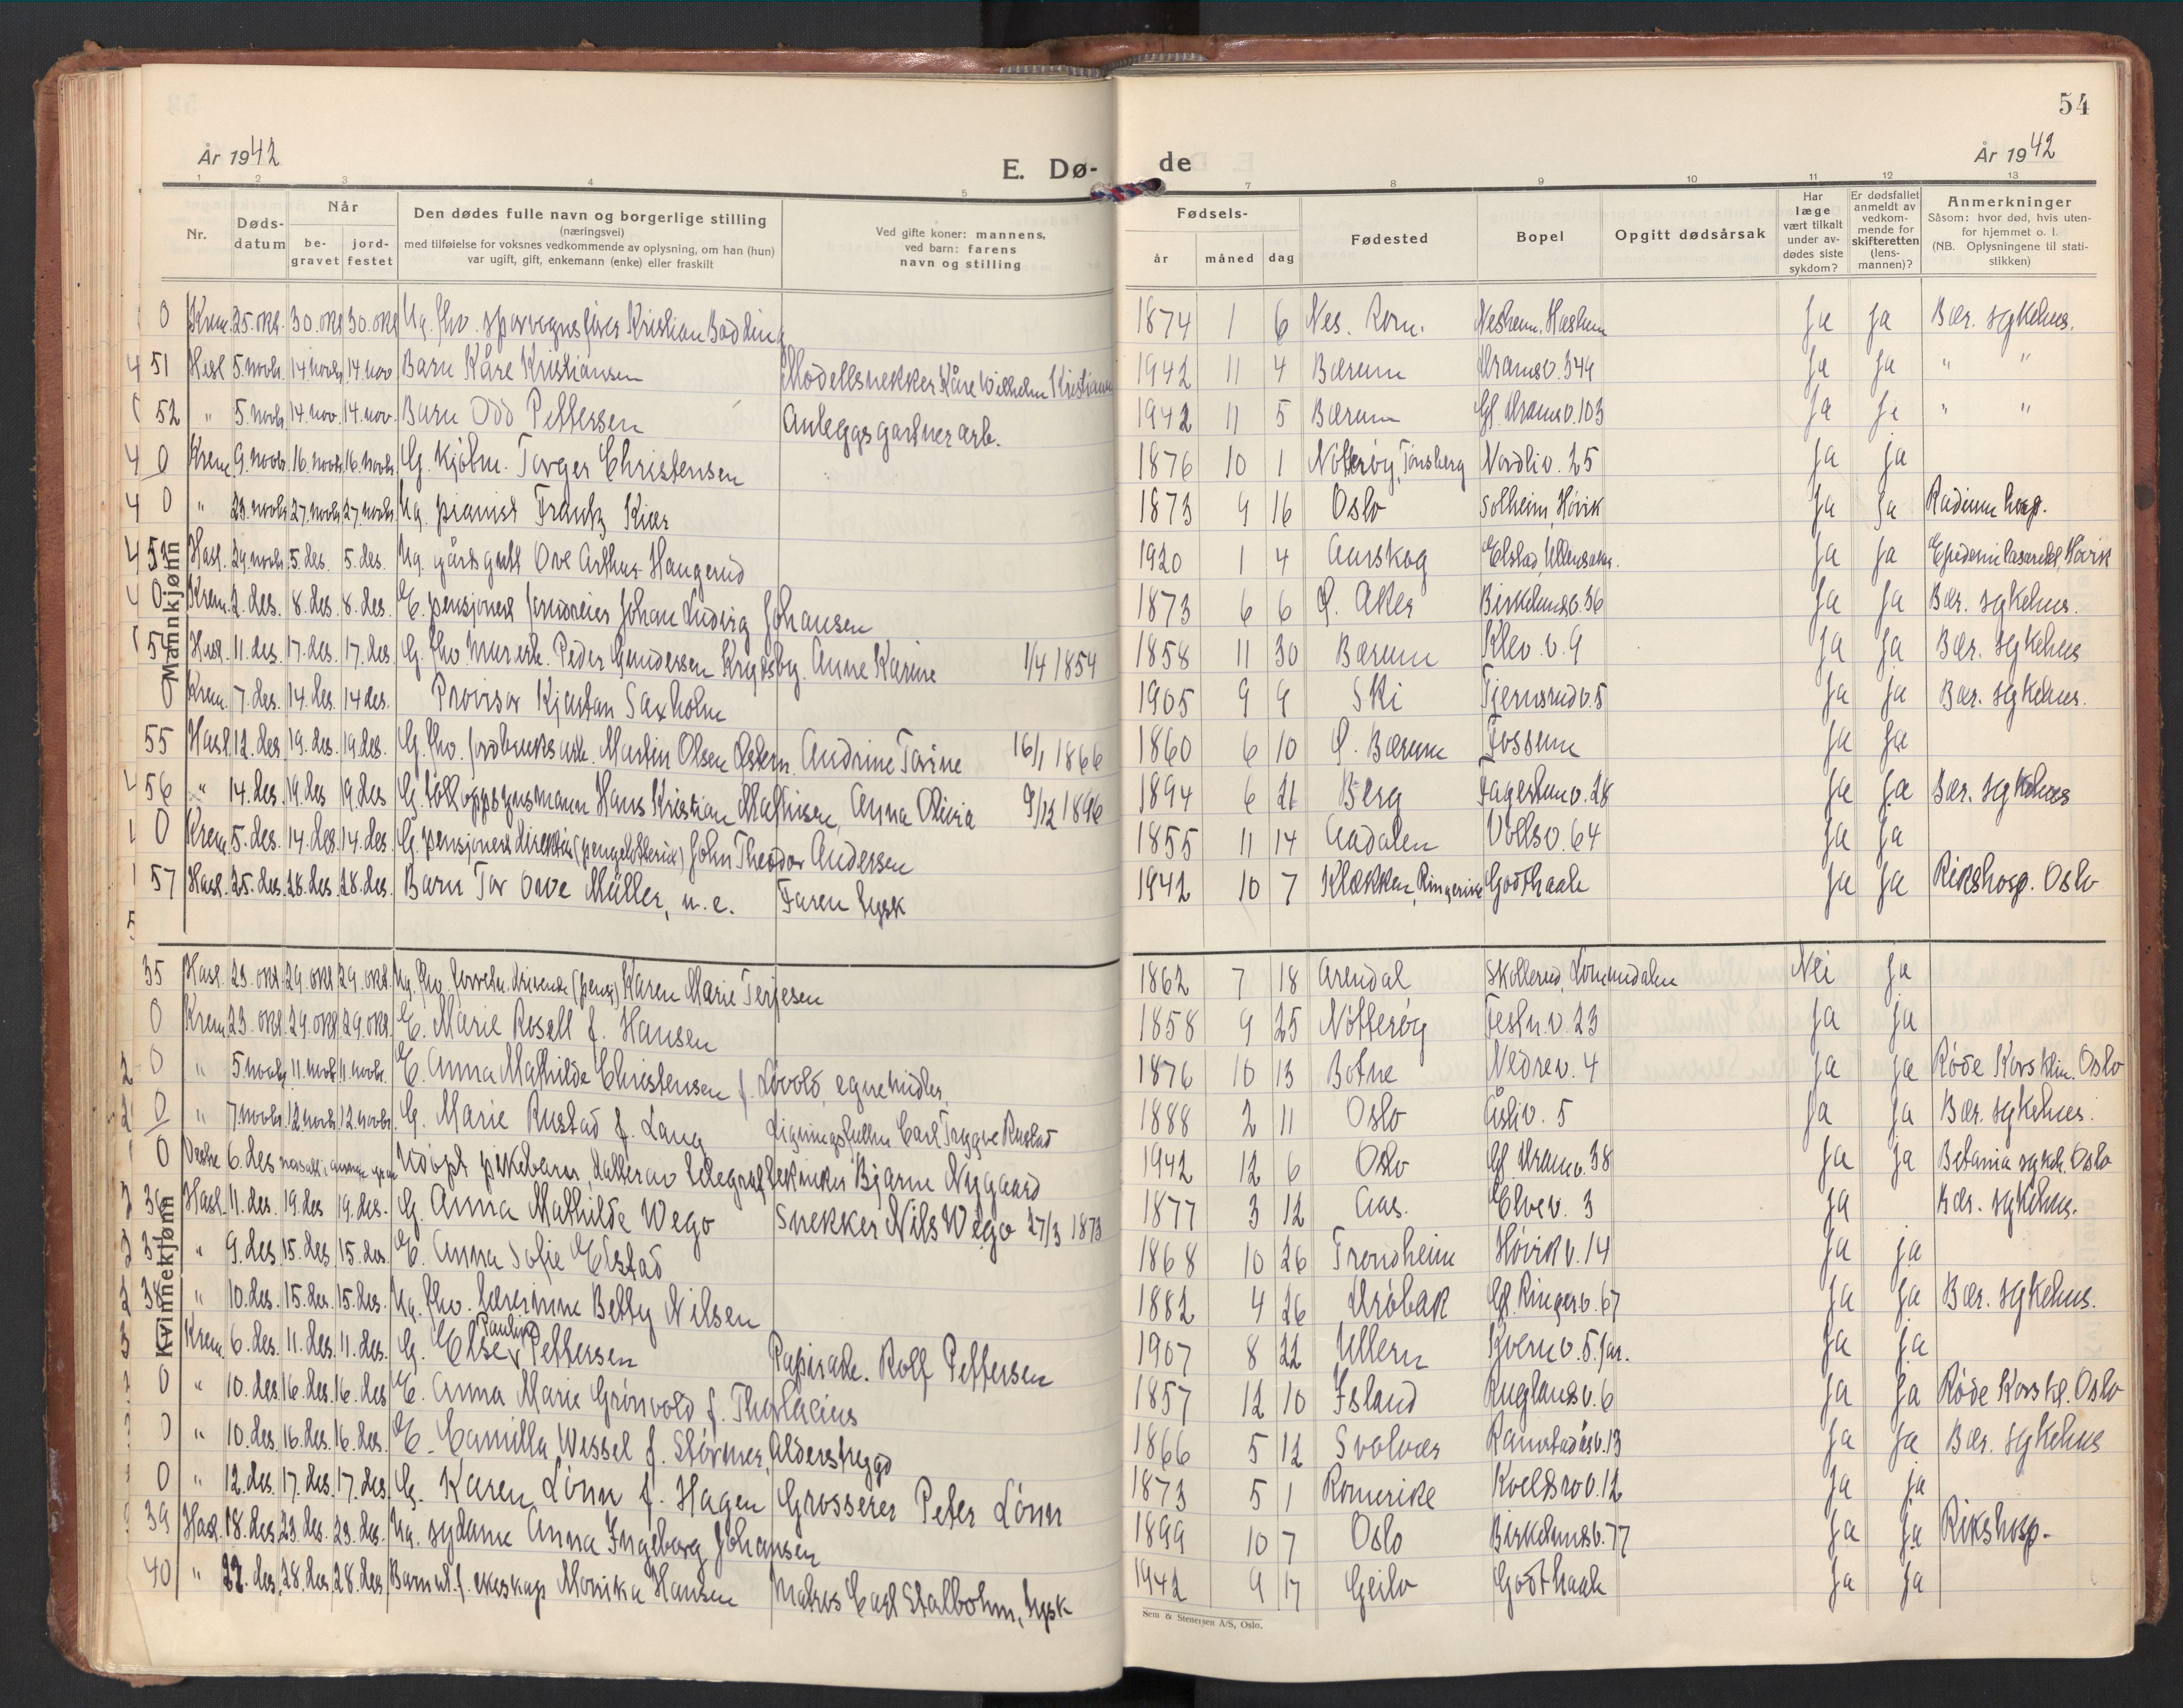 54
År 1942
E. Dø- de
År 1942
1 2 3 4 5 7 8 9 10 11 12 13
Nr.
Døds-
datum
Når
be-
gravet
jord-
festet
Den dødes fulle navn og borgerlige stilling
(næringsvei)
med tilføielse for voksnes vedkommende av oplysning, om han (hun)
var ugift, gift, enkemann (enke) eller fraskilt
Ved gifte koner: mannens,
ved barn: farens
navn og stilling
Fødsels-
år måned dag
Fødested
Bopel
Opgitt dødsårsak
Har
læge
vært tilkalt
under av-
dødes siste
sykdom?
Er dødsfallet
anmeldt av
vedkom-
mende for
skifteretten
(lens-
mannen)?
Anmerkninger
Såsom: hvor død, hvis uten-
for hjemmet o. l.
(NB. Oplysningene til stati-
stikken)
Mannkjønn
0 Krem. 25. okt. 30. okt 30. okt Ug. fhv. sporvognsfører Kristian Bødding 1874 1 6 Nes. Rom. Neshem, Haslum Ja Ja Bær. sykehus.
51 Hasl 5. novbr. 14. novbr. 14. nov Barn Kåre Kristiansen Modellsnekker Kåre Wilhelm Kristiansen 1942 11 4 Bærum 344 Ja Ja " "
52 " 5. novbr. 14. nov. 14. nov. Barn Odd Pettersen Anleggsgartnerarb. 1942 11 5 Bærum 103 Ja Ja " "
0 Krem. 9. novbr. 16. novbr. 16. novbr. G. Kjøbm. Torger Christensen 1876 10 1 Nøtterøy, Tønsberg Nordliv. 25 Ja ja
0 " 23. novbr. 27. novbr. 27. novbr. Ug. pianist Frantz Kiær 1873 9 16 Oslo Solheim, Høvik Ja Ja Radium hosp.
53 Hasl. 29. novbr. 5. des. 5. des. Ug. gårdsgutt Ove Arthur Haugerud 1920 1 4 Aurskog Elstad, Ullensaker. Ja Ja Epidemilasarettet, Høvik
0 Krem. 2. des. 8. des. 8. des. E. pensjonert Johan Ludvig Johansen 1873 6 6 Ø. Aker Birkelundsv. 36 Ja Ja Bær. sykehus.
54 Hasl. 11. des. 17. des. 17. des. G. fhv. murerh. Peder Gundersen Krydsby. Anne Karine 1/4 1854 1858 11 30 Bærum Klev. v. 9 Ja Ja Bær. sykehus
0 Krem. 7. des. 14. des. 14 des. Provisor Kjartan Saxholm 1905 9 9 Ski Tjernsrudv. 5 Ja Ja Bær. sykehus.
55 Hasl. 12. des. 19. des. 19. des. G. fhv. jordbruksarb. Martin Olsen Østern. Andrine Torine 16/1 1866 1860 6 10 Ø. Bærum Fossum Ja Ja
56 " 14. des. 19. des 19. des G. tolloppsynsmann Hans Kristian Mathisen, Anna Olivia 9/12 1896 1894 6 21 Berg Fagerlunv. 28 Ja Ja Bær. sykehus
0 Krem. 5. des. 14. des. 14. des. G. pensjonert direktør (pengelotteriet) John Theodor Andersen 1855 11 14 Aadalen Vollsv. 64 Ja Ja
57 Hasl. 25. des. 28. des. 28. des. Barn Tor Ove Müller, u. e. Faren tysk 1942 10 7 Klækken, Ringerike Godthaab Ja Ja Rikshosp. Oslo
Kvinnekjønn
35 Hasl. 23. okt. 29. okt 29. okt. Ug. fhv. (pens) Karen Marie Terjesen 1862 7 18 Arendal Skollerud, Lommedalen Nei Ja
0 Krem. 23. okt. 29. okt 29. okt. E. Marie Rosell f. Hansen 1858 9 25 Nøtterøy Festn. v. 23 Ja ja
0 " 5. novbr. 11. novbr. 11. novbr. E. Anna Mathilde Christensen f. Løvold, egne midler. 1876 10 13 Botne Nedrev. 4 Ja Ja Røde Kors klin. Oslo
0 " 7. novbr. 12. novbr. 12. novbr. G. Marie Rustad f. Lang Ligningsfullm Carl Trygve Rustad 1888 2 11 Oslo Åsliv. 5 Ja Ja Bær. sykehus.
0 6. des Udøpt pikebarn, datter av telegraftekniker Bjarne Nygaard 1942 12 6 Oslo 38 Ja Ja Betania sykeh. Oslo
36 Hasl. 11. des. 19. des 19. des. G. Anna Mathilde Wego Snekker Nils Wego 27/3 1873 1877 3 12 Aas. Elvev. 3 Ja Bær. sykehus.
37 " 9. des. 15. des. 15. des. E. Anna Sofie Elstad 1868 10 26 Trondheim Høvikv. 14 Ja ja
38 " 10. des. 15. des. 15. des. Ug. fhv. lærerinne Betty Nilsen 1882 4 26 Drøbak Gl. Ringer v. 67 Ja Ja Bær. sykehus.
Krem. 6. des. 11. des. 11. des. G. Else Pauline Pettersen Papirarb. Rolf Pettersen 1907 8 22 Ullern Kvernv. 5. Jar. Ja ja
0 " 10. des. 16. des. 16. des E. Anna Marie Grønvold f. Thorlacius 1857 12 10 Island Ruglandsv. 6 Ja Ja Røde Kors kl. Oslo
0 " 10. des. 16. des. 16. des. E. Camilla Wessel f. Størmer, Alderstrygd 1866 5 12 Svolvær Ramstadåsv. 13 Ja Ja Bær. sykehus
0 " 12. des. 17. des. 17. des. G. Karen Lønn f. Hagen Grosserer Peter Lønn 1873 5 1 Romerike Kveldsrov. 12 Ja ja
39 Hasl. 18. des. 23. des. 23. des. Ug. sydame Anna Ingeborg Johansen 1899 10 7 Oslo Birkelundsv. 77 Ja ja Rikshosp.
40 " 22. des. 28. des. 28. des. Barn ut. f. ekteskap Monika Hansen Matros Carl Stalbohm, tysk 1942 9 17 Geilo Godthaab Ja Ja
Sem & Stenersen A/S, Oslo.